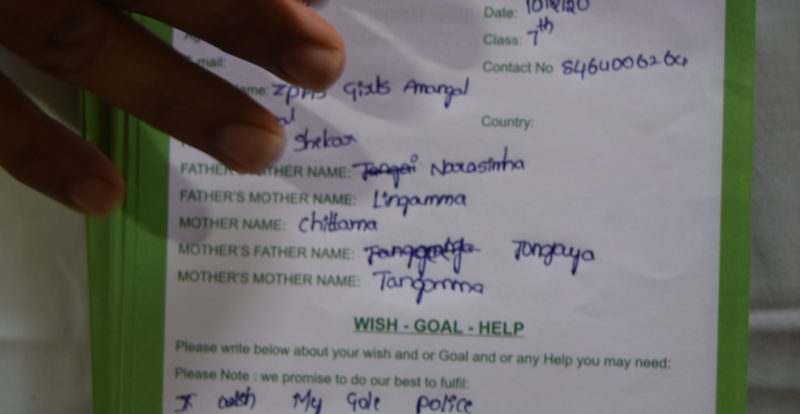 Date: 10/12/20
Class: 7th
mail:
Contact No 8464006264
ame: ZPHS Girls Amangal
al Country:
Shekar
FATHER'S FATHER NAME: Narasimha
FATHER'S MOTHER NAME: Lingamma
MOTHER NAME: Chittama
MOTHER'S FATHER NAME: Tongaya
MOTHER'S MOTHER NAME: Tangomma
WISH - GOAL - HELP
Please write below about your wish and or Goal and or any Help you may need:
Please Note : we promise to do our best to fulfil:
I wish My Gole police